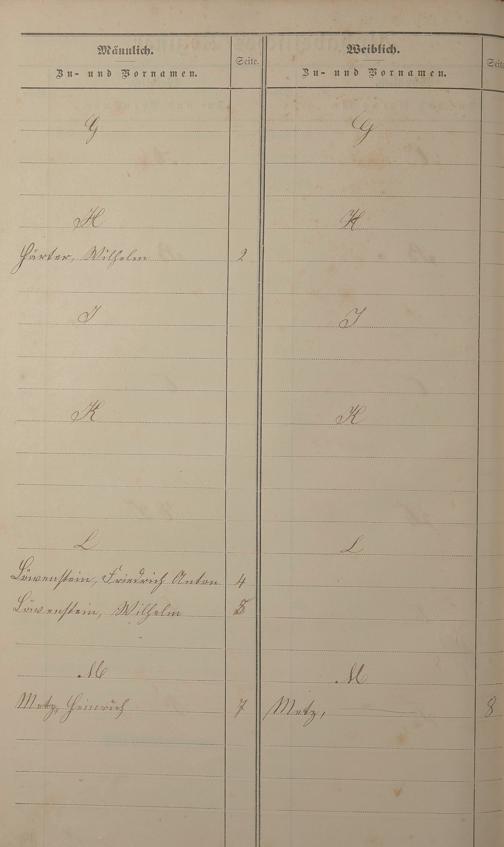 Männlich.
Zu- und Vornamen.
Seite.
G
H
Härter, Wilhelm 2
I
K
L
Löwenstein, Friedrich Anton 4
Löwenstein, Wilhelm 8
M
Metz, Heinrich 7
Weiblich.
Zu- und Vornamen.
Seite
G
H
I
K
L
M
Metz, 8